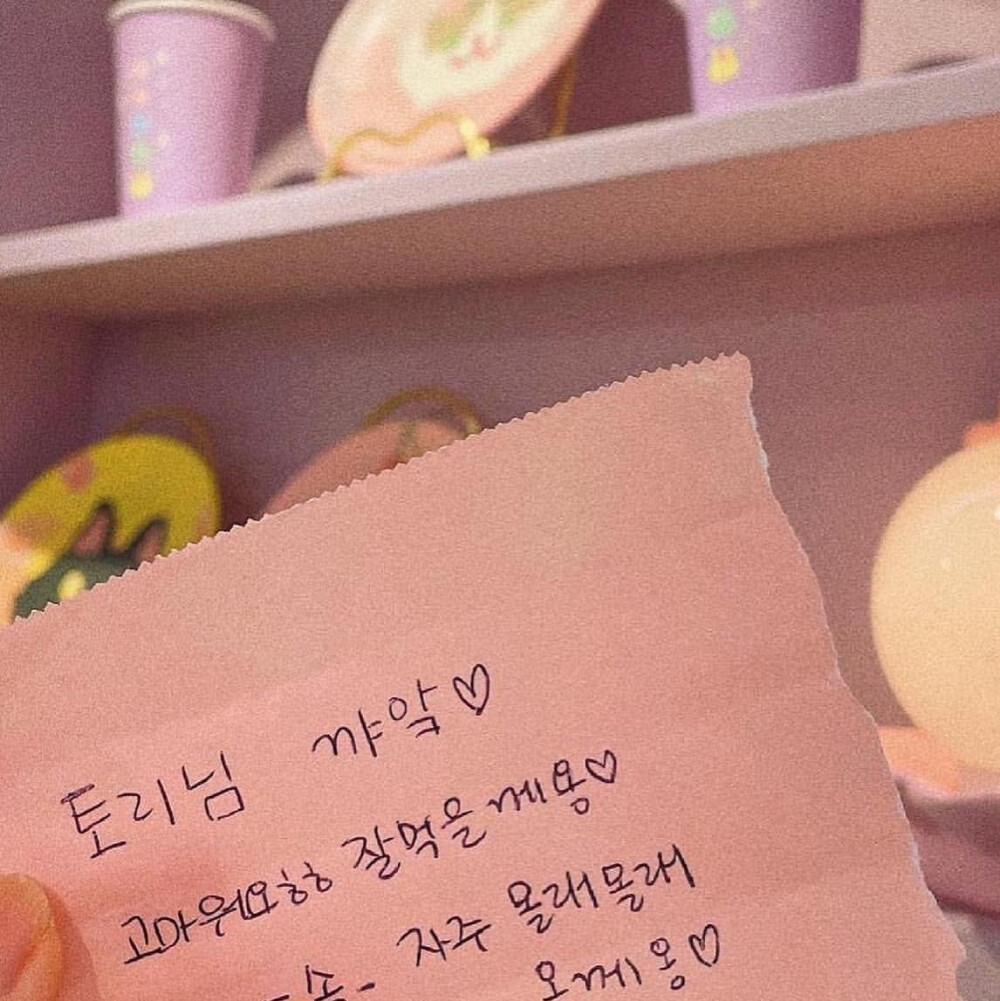 토리님 꺄악♡
고마워요ㅎㅎ 잘먹을께용♡
-송- 자주 몰래몰래
오께용♡